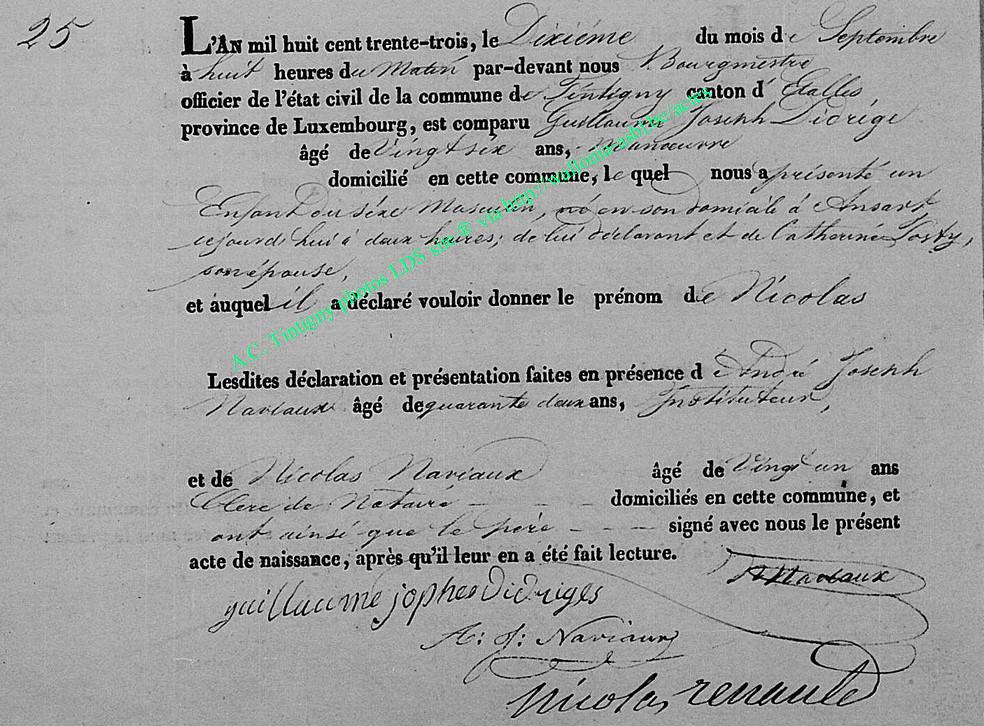 25
L'AN mil huit cent trente-trois, le Dixiéme du mois de Septembre
à huit heures du Matin par-devant nous Bourgmestre
officier de l'état civil de la commune de Tintigny canton d'Etalle,
province de Luxembourg, est comparu Guillaume Joseph Didrige
âgé de Vingt six ans, Manoeuvre
domicilié en cette commune, le quel nous a présenté un
Enfant du séxe Masculin, né en son domicile à Ansart,
cejourd'hui à deux heures; de lui déclarant et de Catherine
son épouse,
et auquel il a déclaré vouloir donner le prénom de Nicolas
Lesdites déclaration et présentation faites en présence d'é André Joseph
Naviaux âgé de quarante deux ans, Instituteur,
et de Nicolas Naviaux âgé de Vingt un ans
Clerc de Notaire domiciliés en cette commune, et
ont ainsi que le père signé avec nous le présent
acte de naissance, après qu'il leur en a été fait lecture.
guillaume jophes Didriges
N Naviaux
A: J: Naviaux
nicolas renauld
A.C. Tintigny photos LDS via http://wallonica